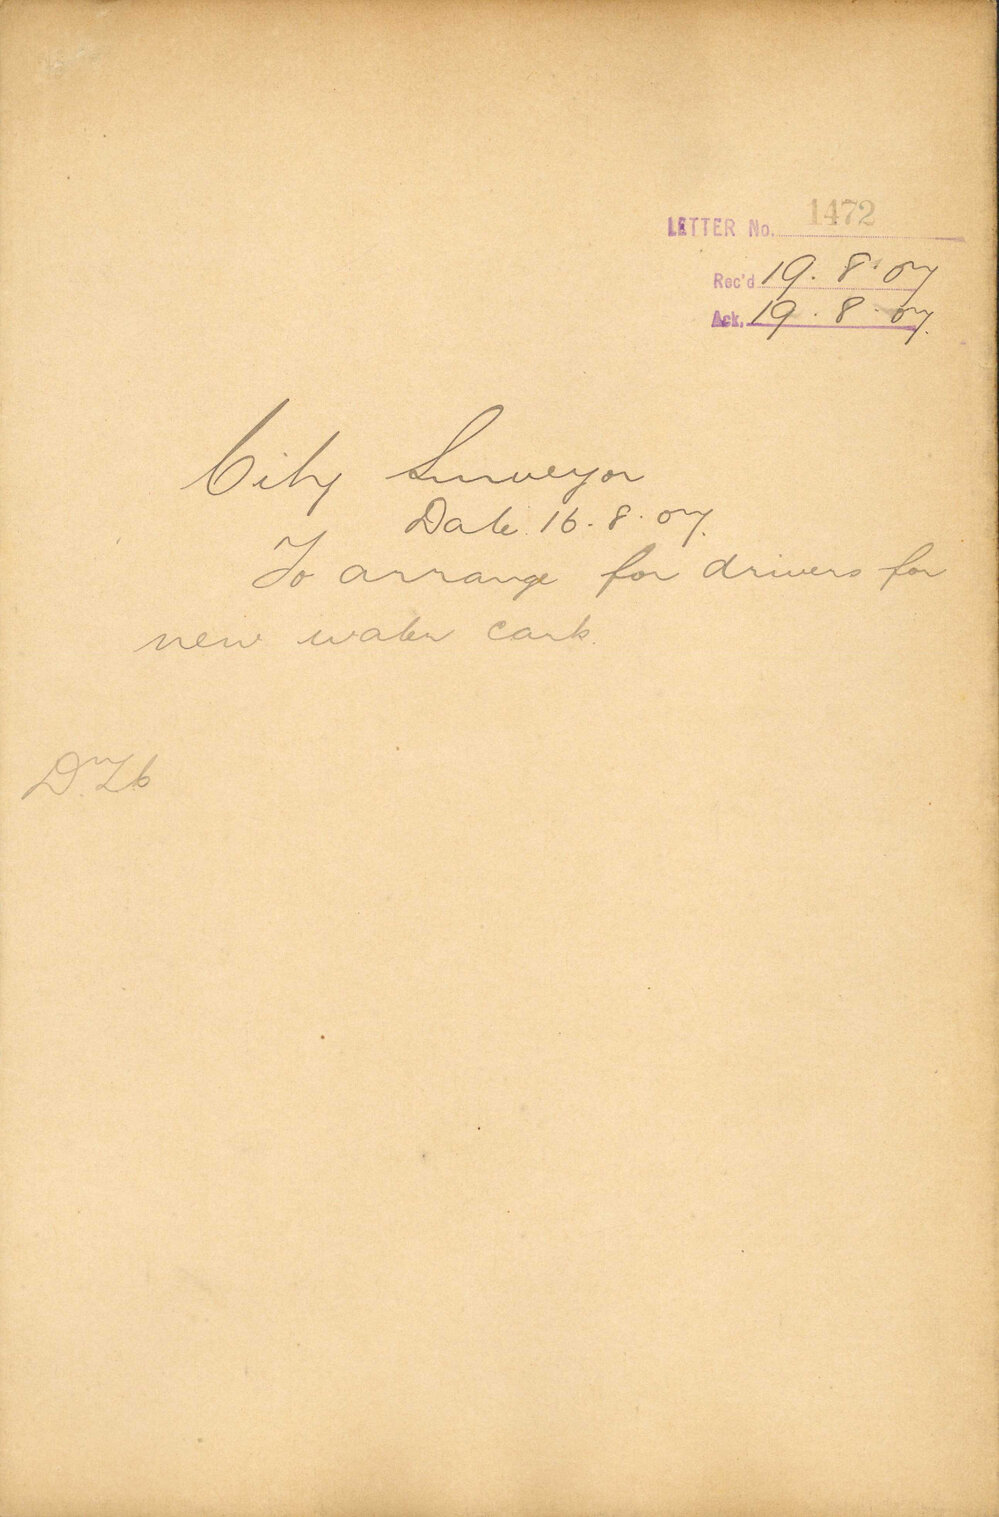 LETTER No. 1472
Rec'd 19.8.07
Ack. 19.8.07.
City Surveyor
Date 16.8.07.
To arrange for drivers for
new water cart.